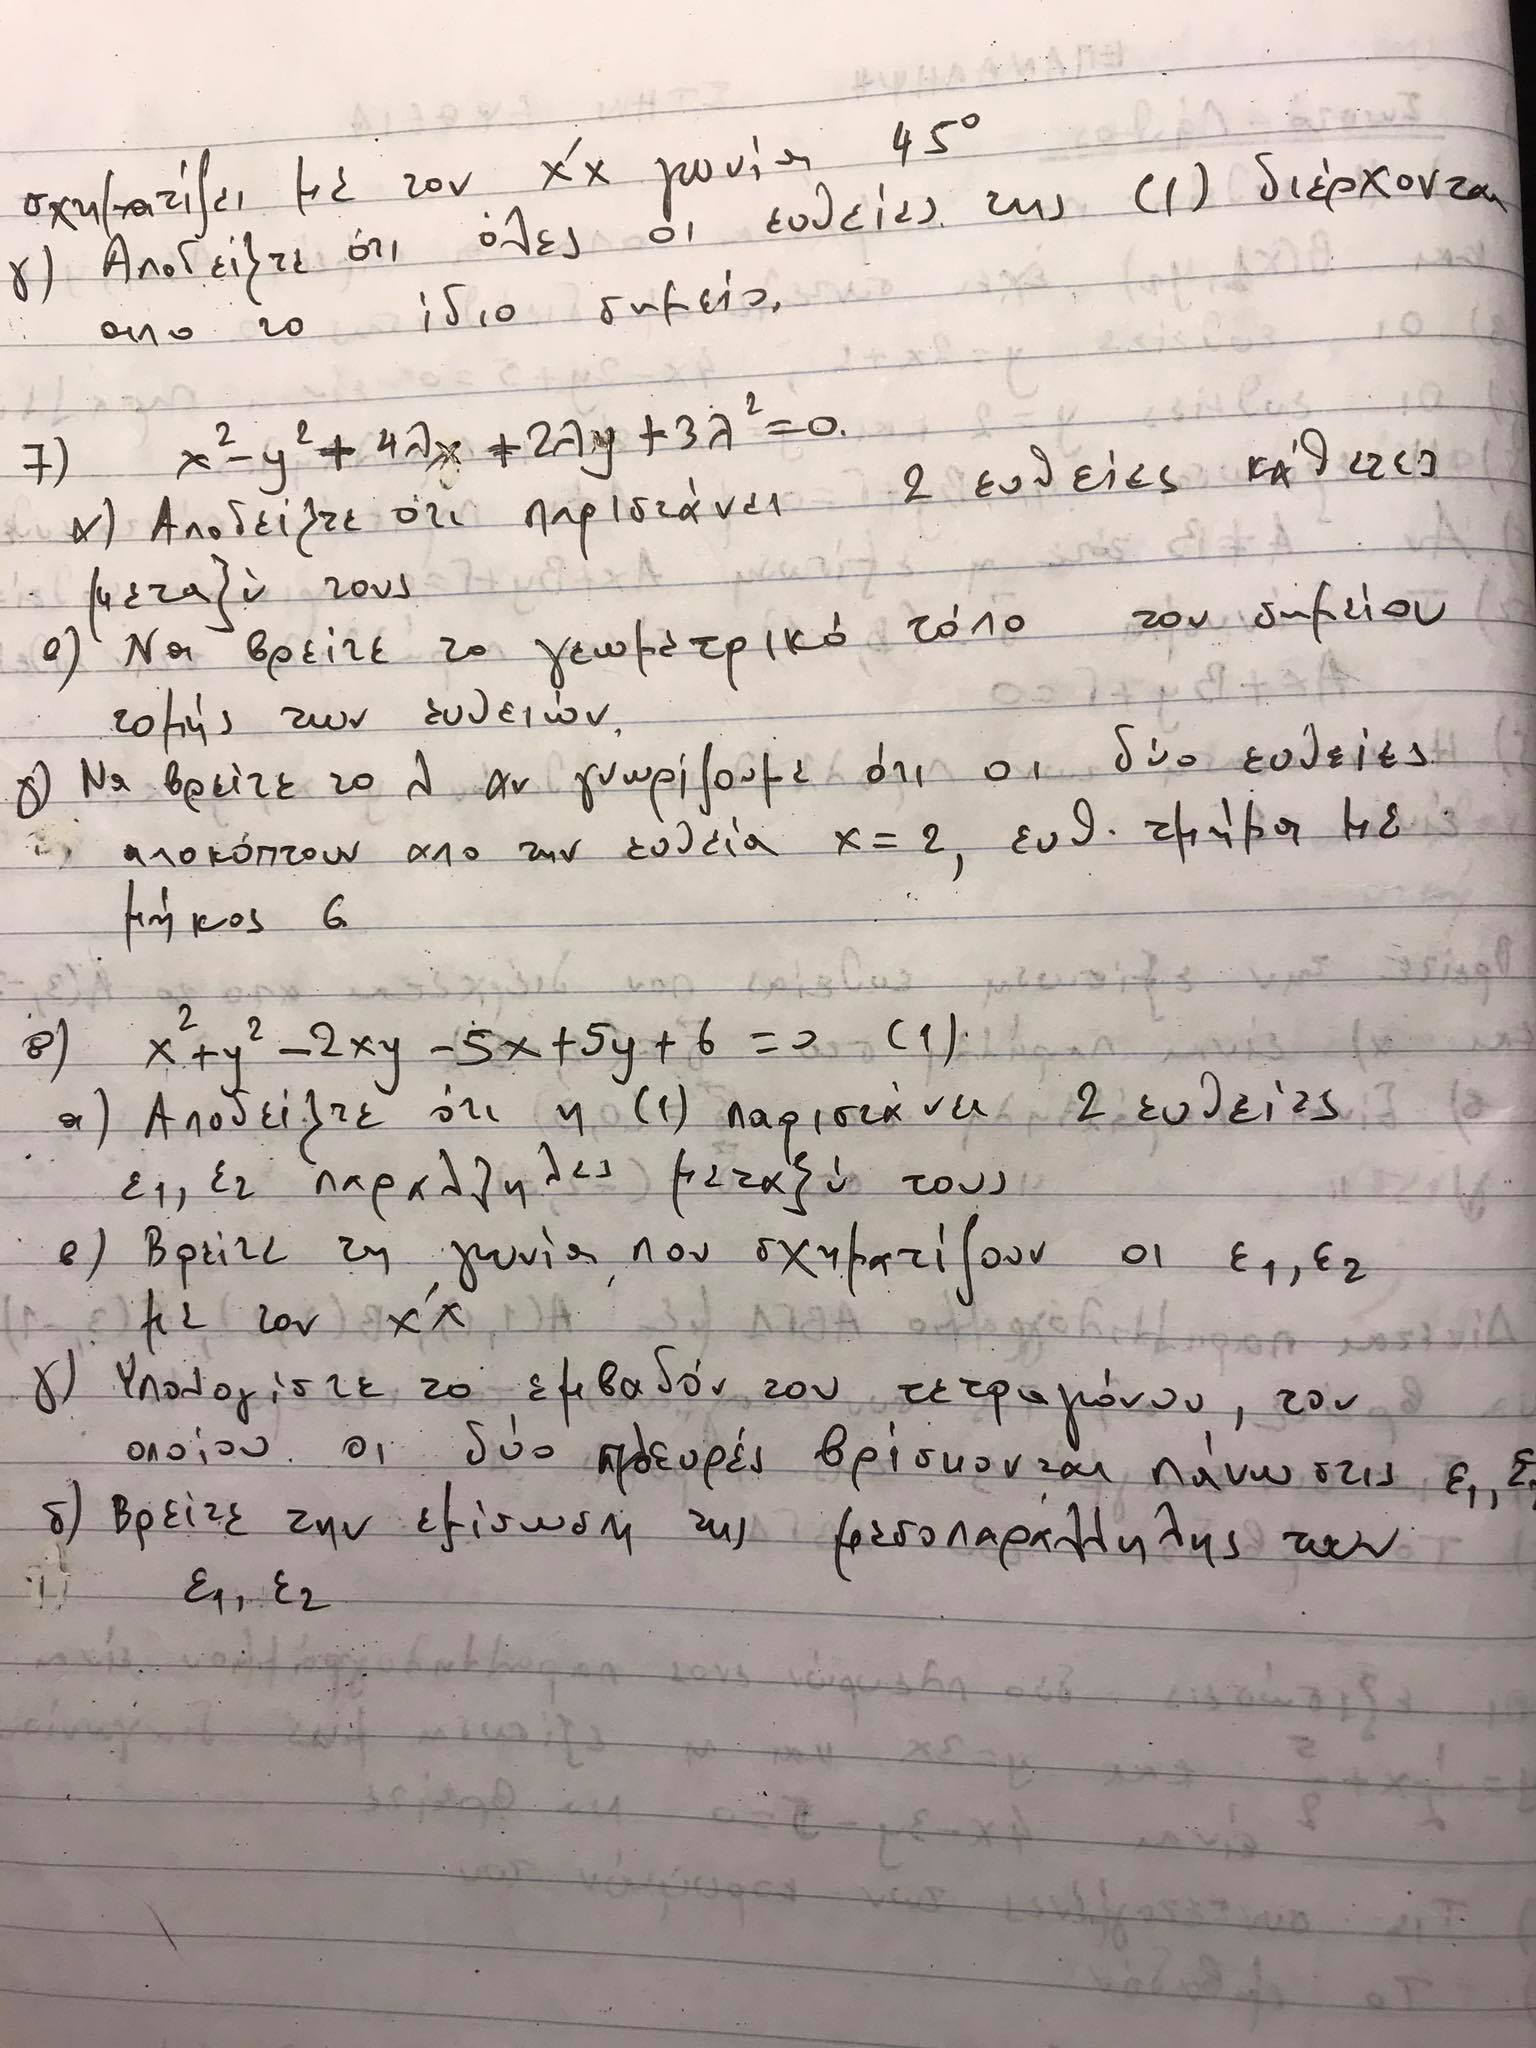 σχηματίζει με τον x'x γωνία 45°
γ) Αποδείξτε ότι όλες οι ευθείες της (1) διέρχονται
απο το ίδιο σημείο.
7) x²-y²+4λx+2λy+3λ²=0.
α) Αποδείξτε ότι παριστάνει 2 ευθείες κάθετες
μεταξύ τους
β) Να βρείτε το γεωμετρικό τόπο του σημείου
τομής των ευθειών.
γ) Να βρείτε το λ αν γνωρίζουμε ότι οι δύο ευθείες
αποκόπτουν απο την ευθεία x=2, ευθ. τμήμα με
μήκος 6
8) x²+y²-2xy-5x+5y+6=0 (1)
α) Αποδείξτε ότι η (1) παριστάνει 2 ευθείες
ε1, ε2 παράλληλες μεταξύ τους
β) Βρείτε τη γωνία που σχηματίζουν οι ε1, ε2
με τον x'x
γ) Υπολογίστε το εμβαδόν του τετραγώνου, του
οποίου οι δύο πλευρές βρίσκονται πάνω στις ε1, ε2
δ) Βρείτε την εξίσωση της μεσοπαράλληλης των
ε1, ε2